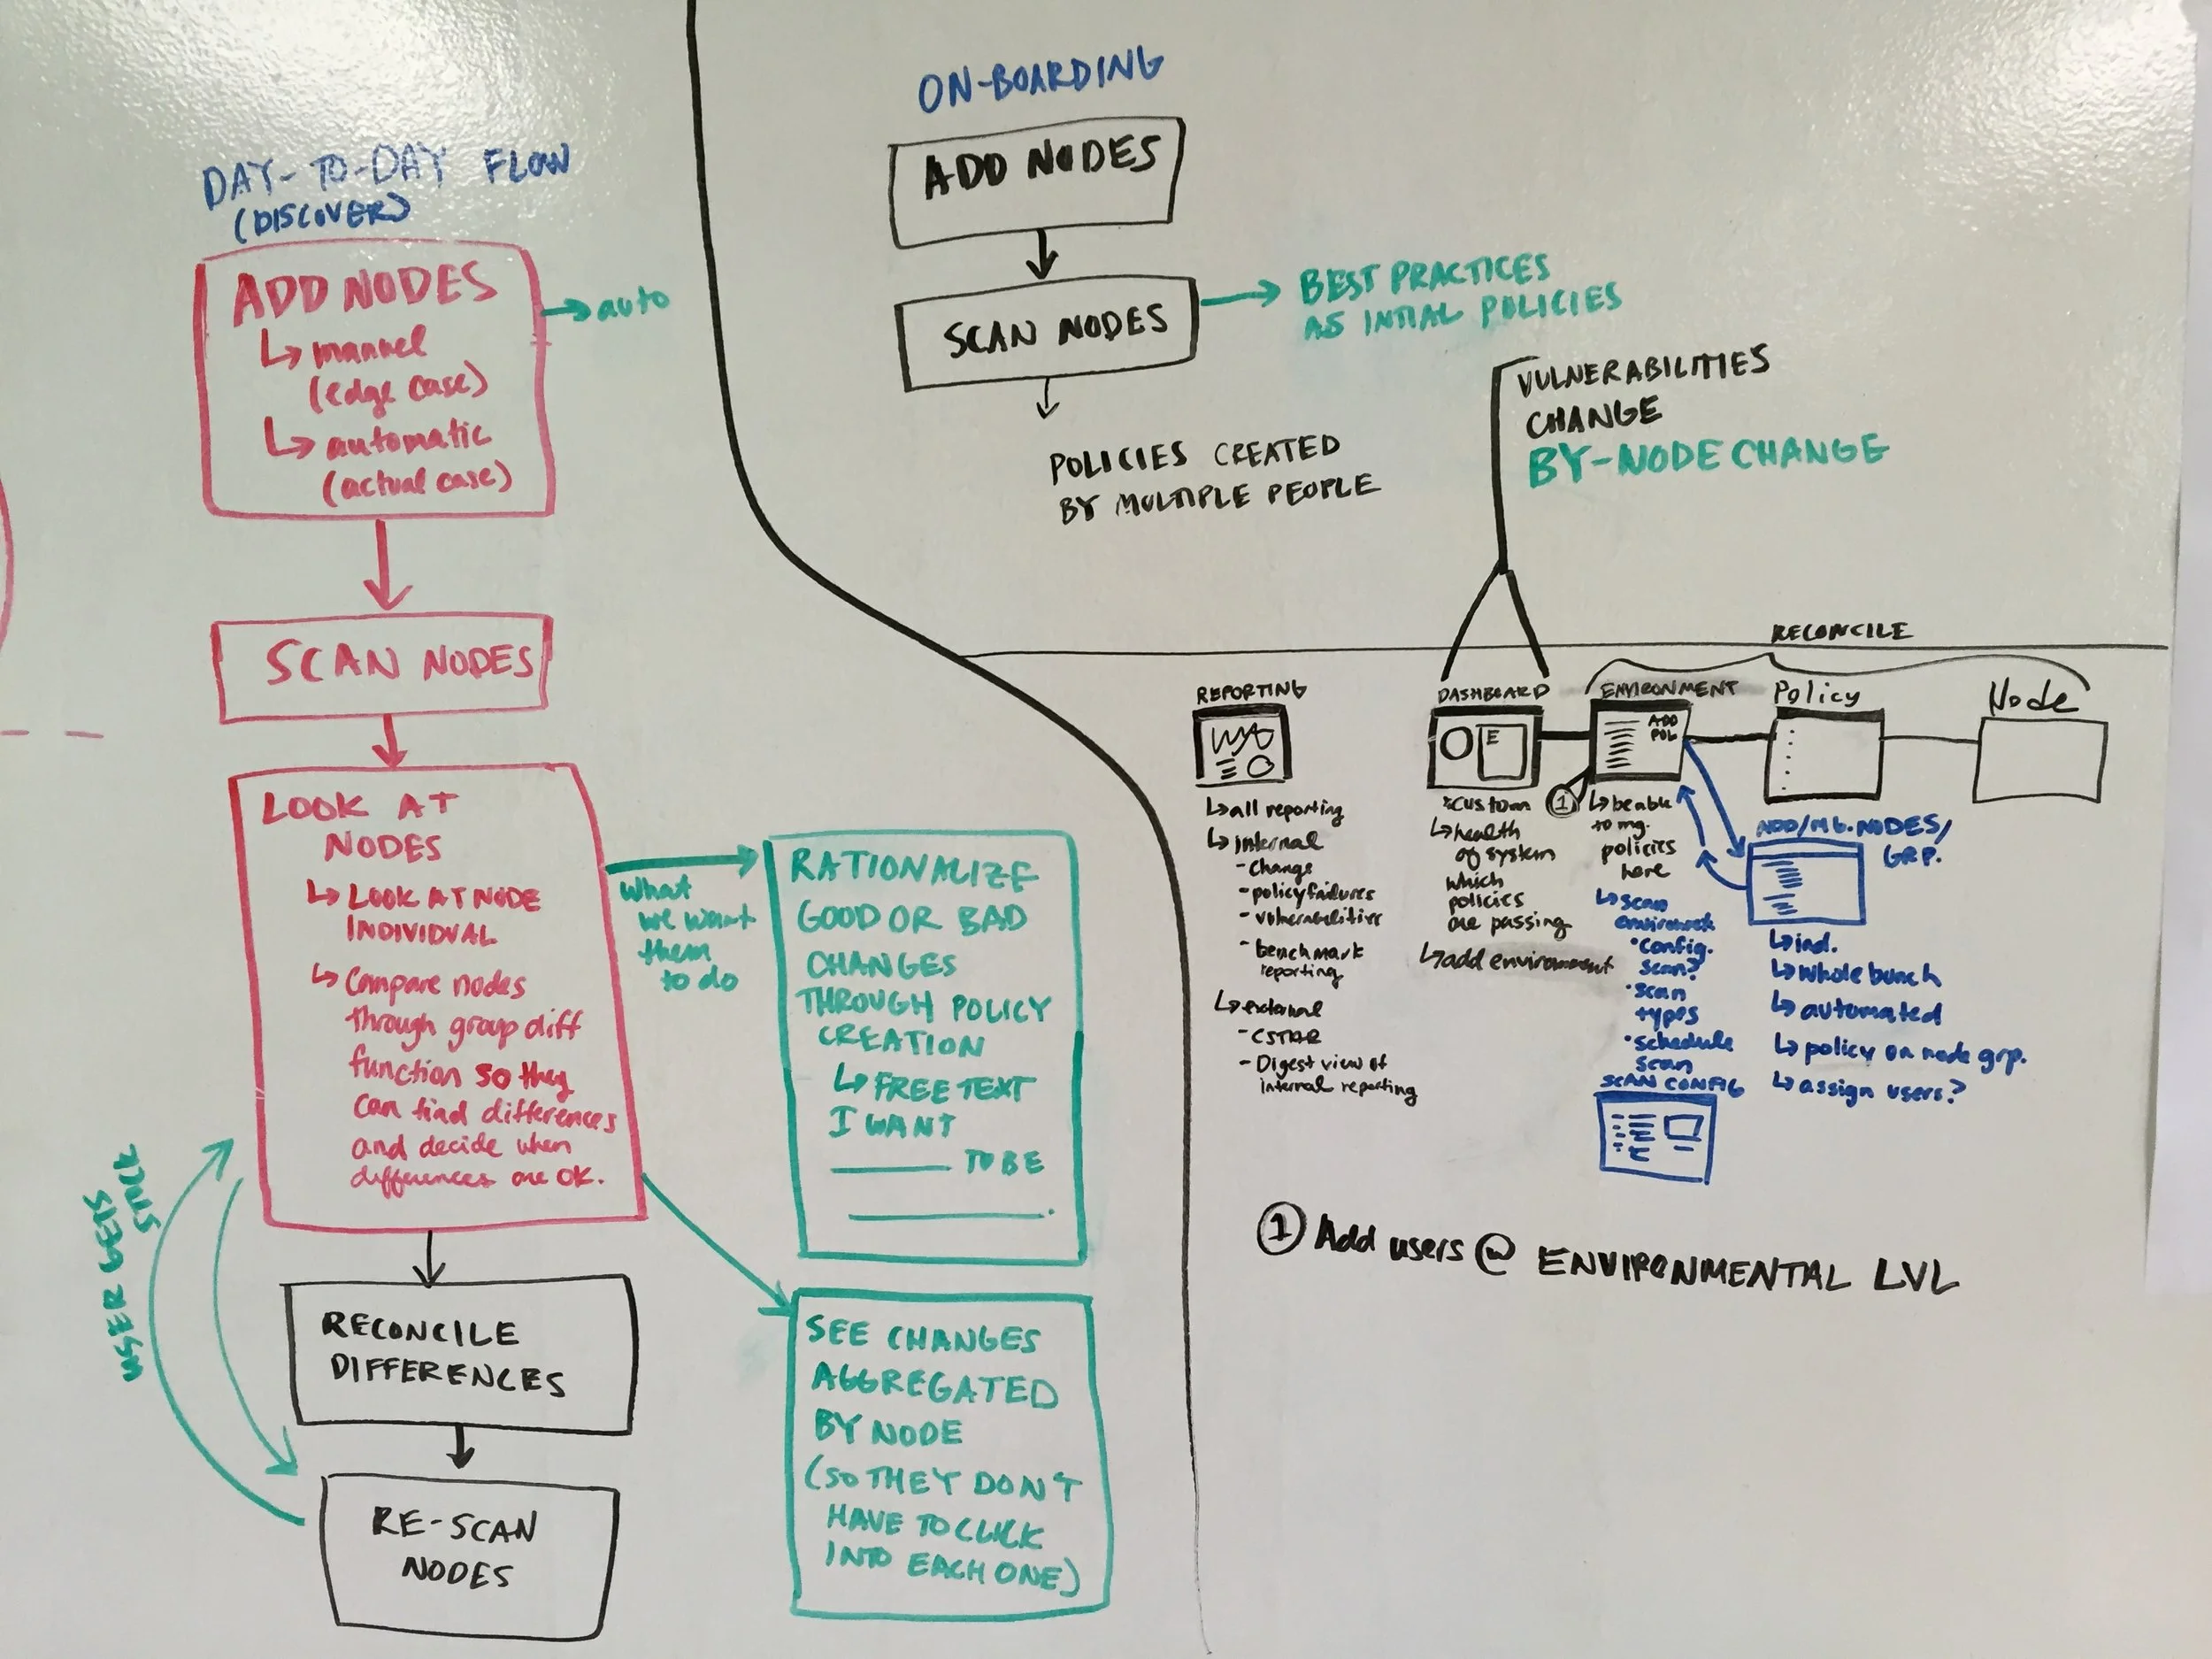 DAY-TO-DAY FLOW
(DISCOVER)
ADD NODES
↳ manuel
(edge case)
↳ automatic
(actual case)
→ auto
SCAN NODES
LOOK AT
NODES
↳ LOOK AT NODE
INDIVIDUAL
↳ Compare nodes
through group diff
function so they
can find differences
and decide when
differences are OK.
What
we want
them
to do
RATIONALIZE
GOOD OR BAD
CHANGES
THROUGH POLICY
CREATION
↳ FREE TEXT
I WANT
______ TO BE
______.
SEE CHANGES
AGGREGATED
BY NODE
(SO THEY DON'T
HAVE TO CLICK
INTO EACH ONE)
RECONCILE
DIFFERENCES
RE-SCAN
NODES
USER GETS
ON-BOARDING
ADD NODES
SCAN NODES
BEST PRACTICES
AS INTIAL POLICIES
POLICIES CREATED
BY MULTIPLE PEOPLE
VULNERABILITIES
CHANGE
BY-NODE CHANGE
RECONCILE
REPORTING
↳ all reporting
↳ internal
- Change
- policy failures
- vulnerabilities
- benchmark
reporting
↳ external
- CSTAR
- Digest view of
internal reporting
DASHBOARD
E
*custom
↳ health
of system
which
policies
are passing
↳ add environment
ENVIRONMENT
ADD
POL
1
↳ beable
to mg.
policies
here
↳ scan
environment
• config.
scan?
• scan
types
• schedule
scan
SCAN CONFIG
Policy
Node
ADD/MG. NODES/
GRP.
↳ ind.
↳ whole bunch
↳ automated
↳ policy on node grp.
↳ assign users?
① Add users @ ENVIRONMENTAL LVL